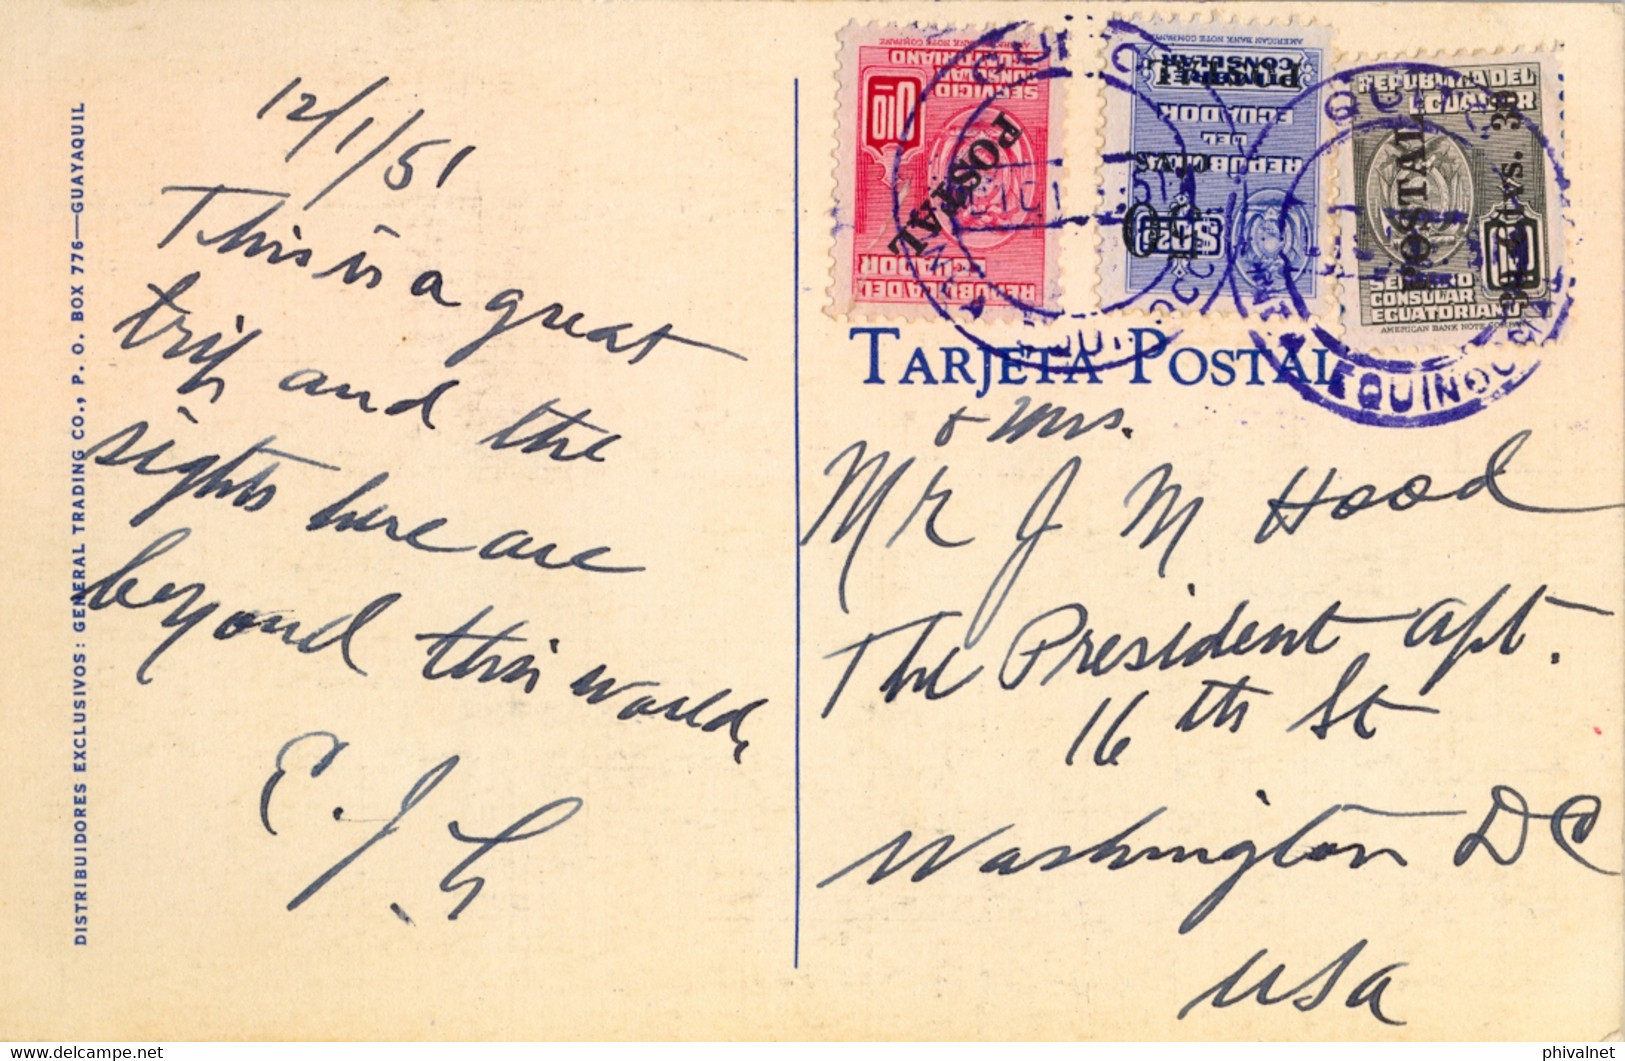 DISTRIBUIDORES EXCLUSIVOS: GENERAL TRADING CO., P. O. BOX 776—GUAYAQUIL
12/1/51
This is a great
trip and the
sights here are
beyond this world,
E. J. L
SERVICIO
CONSULAR
ECUATORIANO
REPUBLICA DEL
ECUADOR
POSTAL
AMERICAN BANK NOTE COMPANY
TIMBRE
CONSULAR
POSTAL
REPÚBLICA
DEL
ECUADOR
ctvs.
50
AMERICAN BANK NOTE COMPANY
REPUBLICA DEL
ECUADOR
POSTAL
ctvs. 30
SERVICIO
CONSULAR
ECUATORIANO
AMERICAN BANK NOTE COMPANY
QUITO
QUITO
EQUINOCCIAL
TARJETA POSTAL
& Mrs.
Mr J M Hood
The President Apt.
16th St
Washington DC
USA
phivalnet